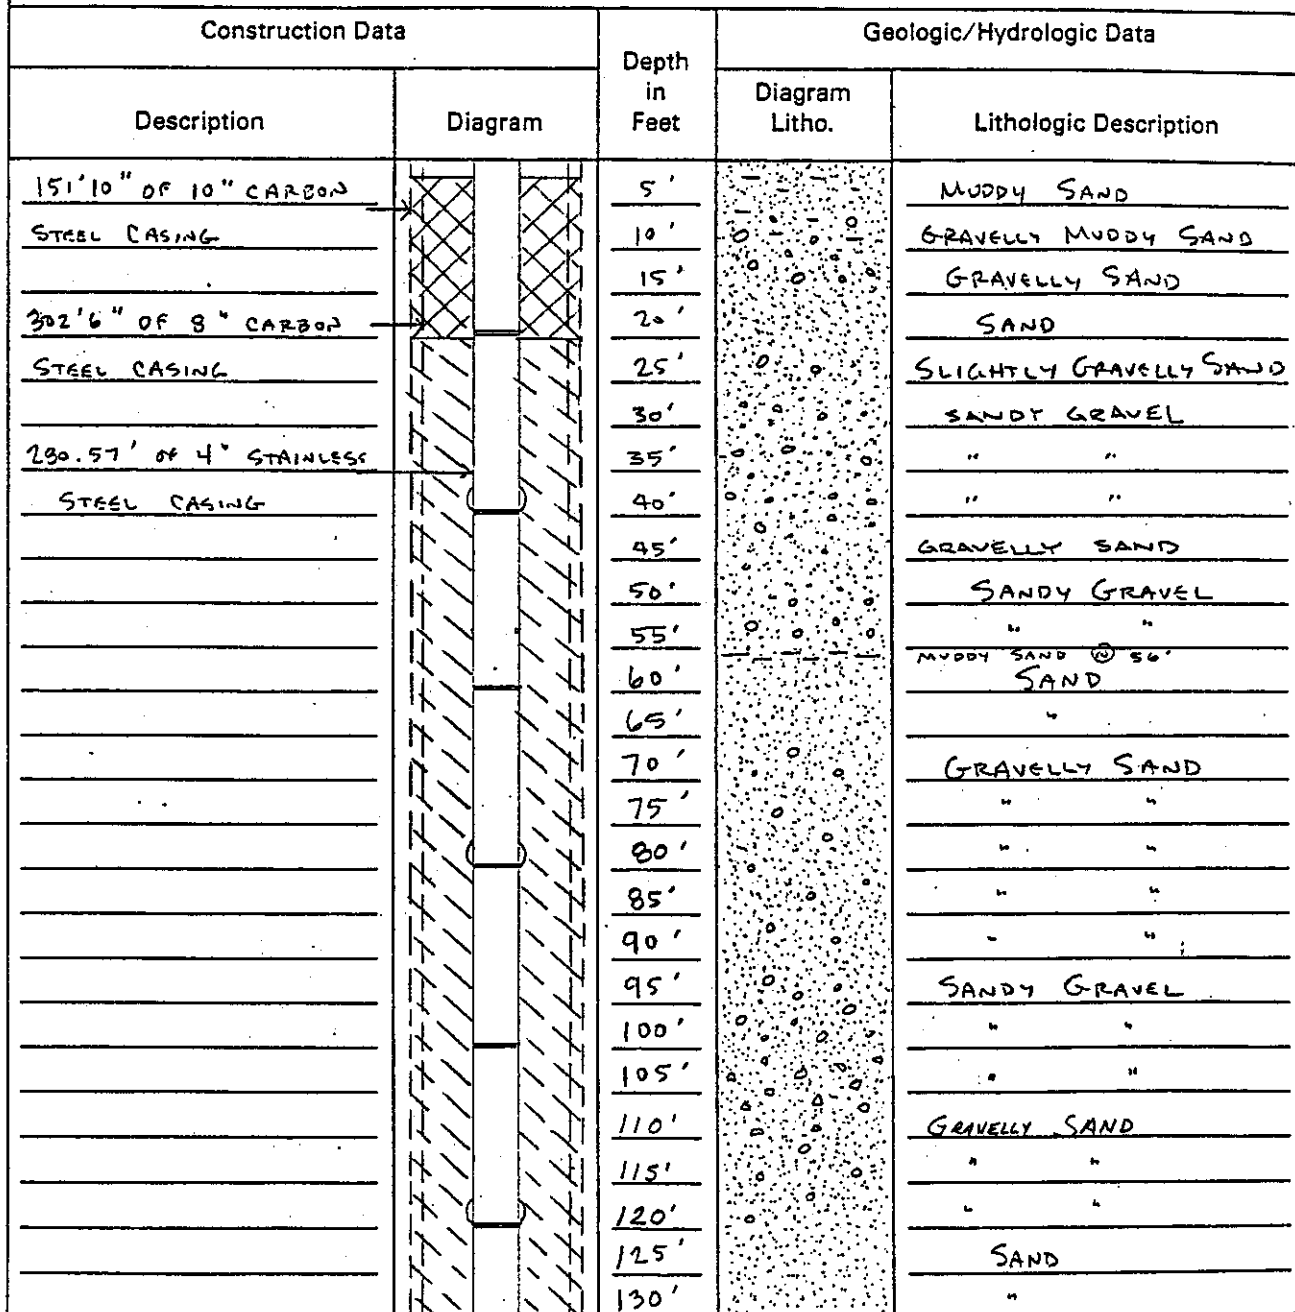 Construction Data
Geologic/Hydrologic Data
Description
Diagram
Depth
in
Feet
Diagram
Litho.
Lithologic Description
151'10" OF 10" CARBON 5' MUDDY SAND
STEEL CASING 10' GRAVELLY MUDDY SAND
15' GRAVELLY SAND
302'6" OF 8" CARBON 20' SAND
STEEL CASING 25' SLIGHTLY GRAVELLY SAND
30' SANDY GRAVEL
280.57' OF 4" STAINLESS 35' " "
STEEL CASING 40' " "
45' GRAVELLY SAND
50' SANDY GRAVEL
55' " "
MUDDY SAND @ 56'
60' SAND
65' "
70' GRAVELLY SAND
75' " "
80' " "
85' " "
90' " "
95' SANDY GRAVEL
100' " "
105' " "
110' GRAVELLY SAND
115' " "
120' " "
125' SAND
130' "